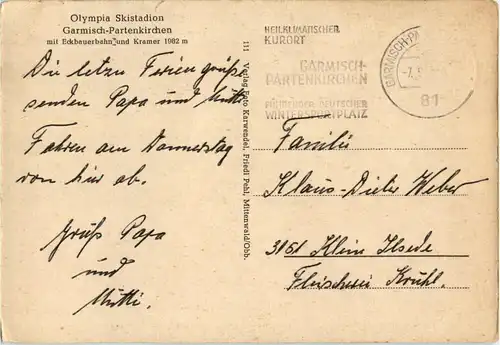 Olympia Skistadion
Garmisch-Partenkirchen
mit Eckbauerbahn und Kramer 1982 m
Die letzte Feriengrüße
senden Papa und Mutti
Fahren am Donnerstag
von hier ab.
Gruß Papa
und
Mutti.
111 Verlag Foto Karwendel, Friedl Pehl, Mittenwald/Obb.
HEILKLIMATISCHER
KURORT
GARMISCH-
PARTENKIRCHEN
FÜHRENDER DEUTSCHER
WINTERSPORTPLATZ
GARMISCH-PA
81
Familie
Klaus-Dieter Weber
3151 Klein Ilsede
Fleischerei Krühl.